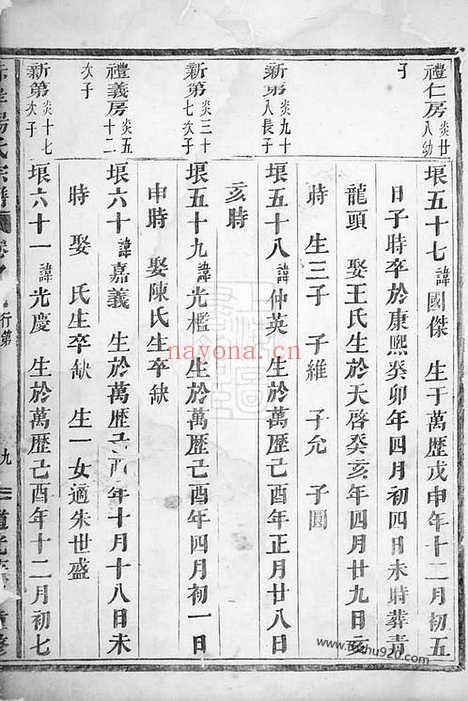 禮仁房炎廿八幼子
垠五十七諱國傑 生于萬曆戊申年十二月初五
日子時卒於康熙癸卯年四月初四日未時葬青
龍頭 娶王氏生於天啓癸亥年四月廿九日亥
時 生三子 子維 子允 子圓
新第炎九十八長子
垠五十八諱仲英 生於萬歷己酉年正月廿八日
亥時
新第炎三十七次子
垠五十九諱光檻 生於萬歷己酉年四月初一日
申時 娶陳氏生卒缺
禮義房炎五十二次子
垠六十諱嘉義 生於萬歷己酉年十月十八日未
時 娶 氏生卒缺 生一女適朱世盛
新第炎十七次子
垠六十一諱光慶 生於萬歷己酉年十二月初七
氏宗譜 行第 九
nayona.com